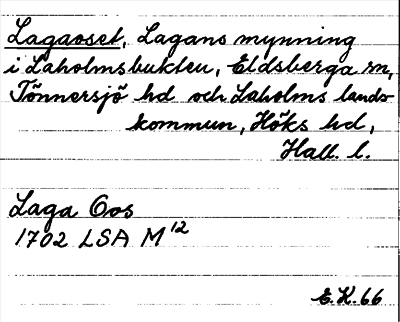 Lagaoset, Lagans mynning
i Laholmsbukten, Eldsberga sn,
Tönnersjö hd och Laholms lands-
kommun, Höks hd,
Hall. l.
Laga Oos
1702 LSA M12
E.K. 66